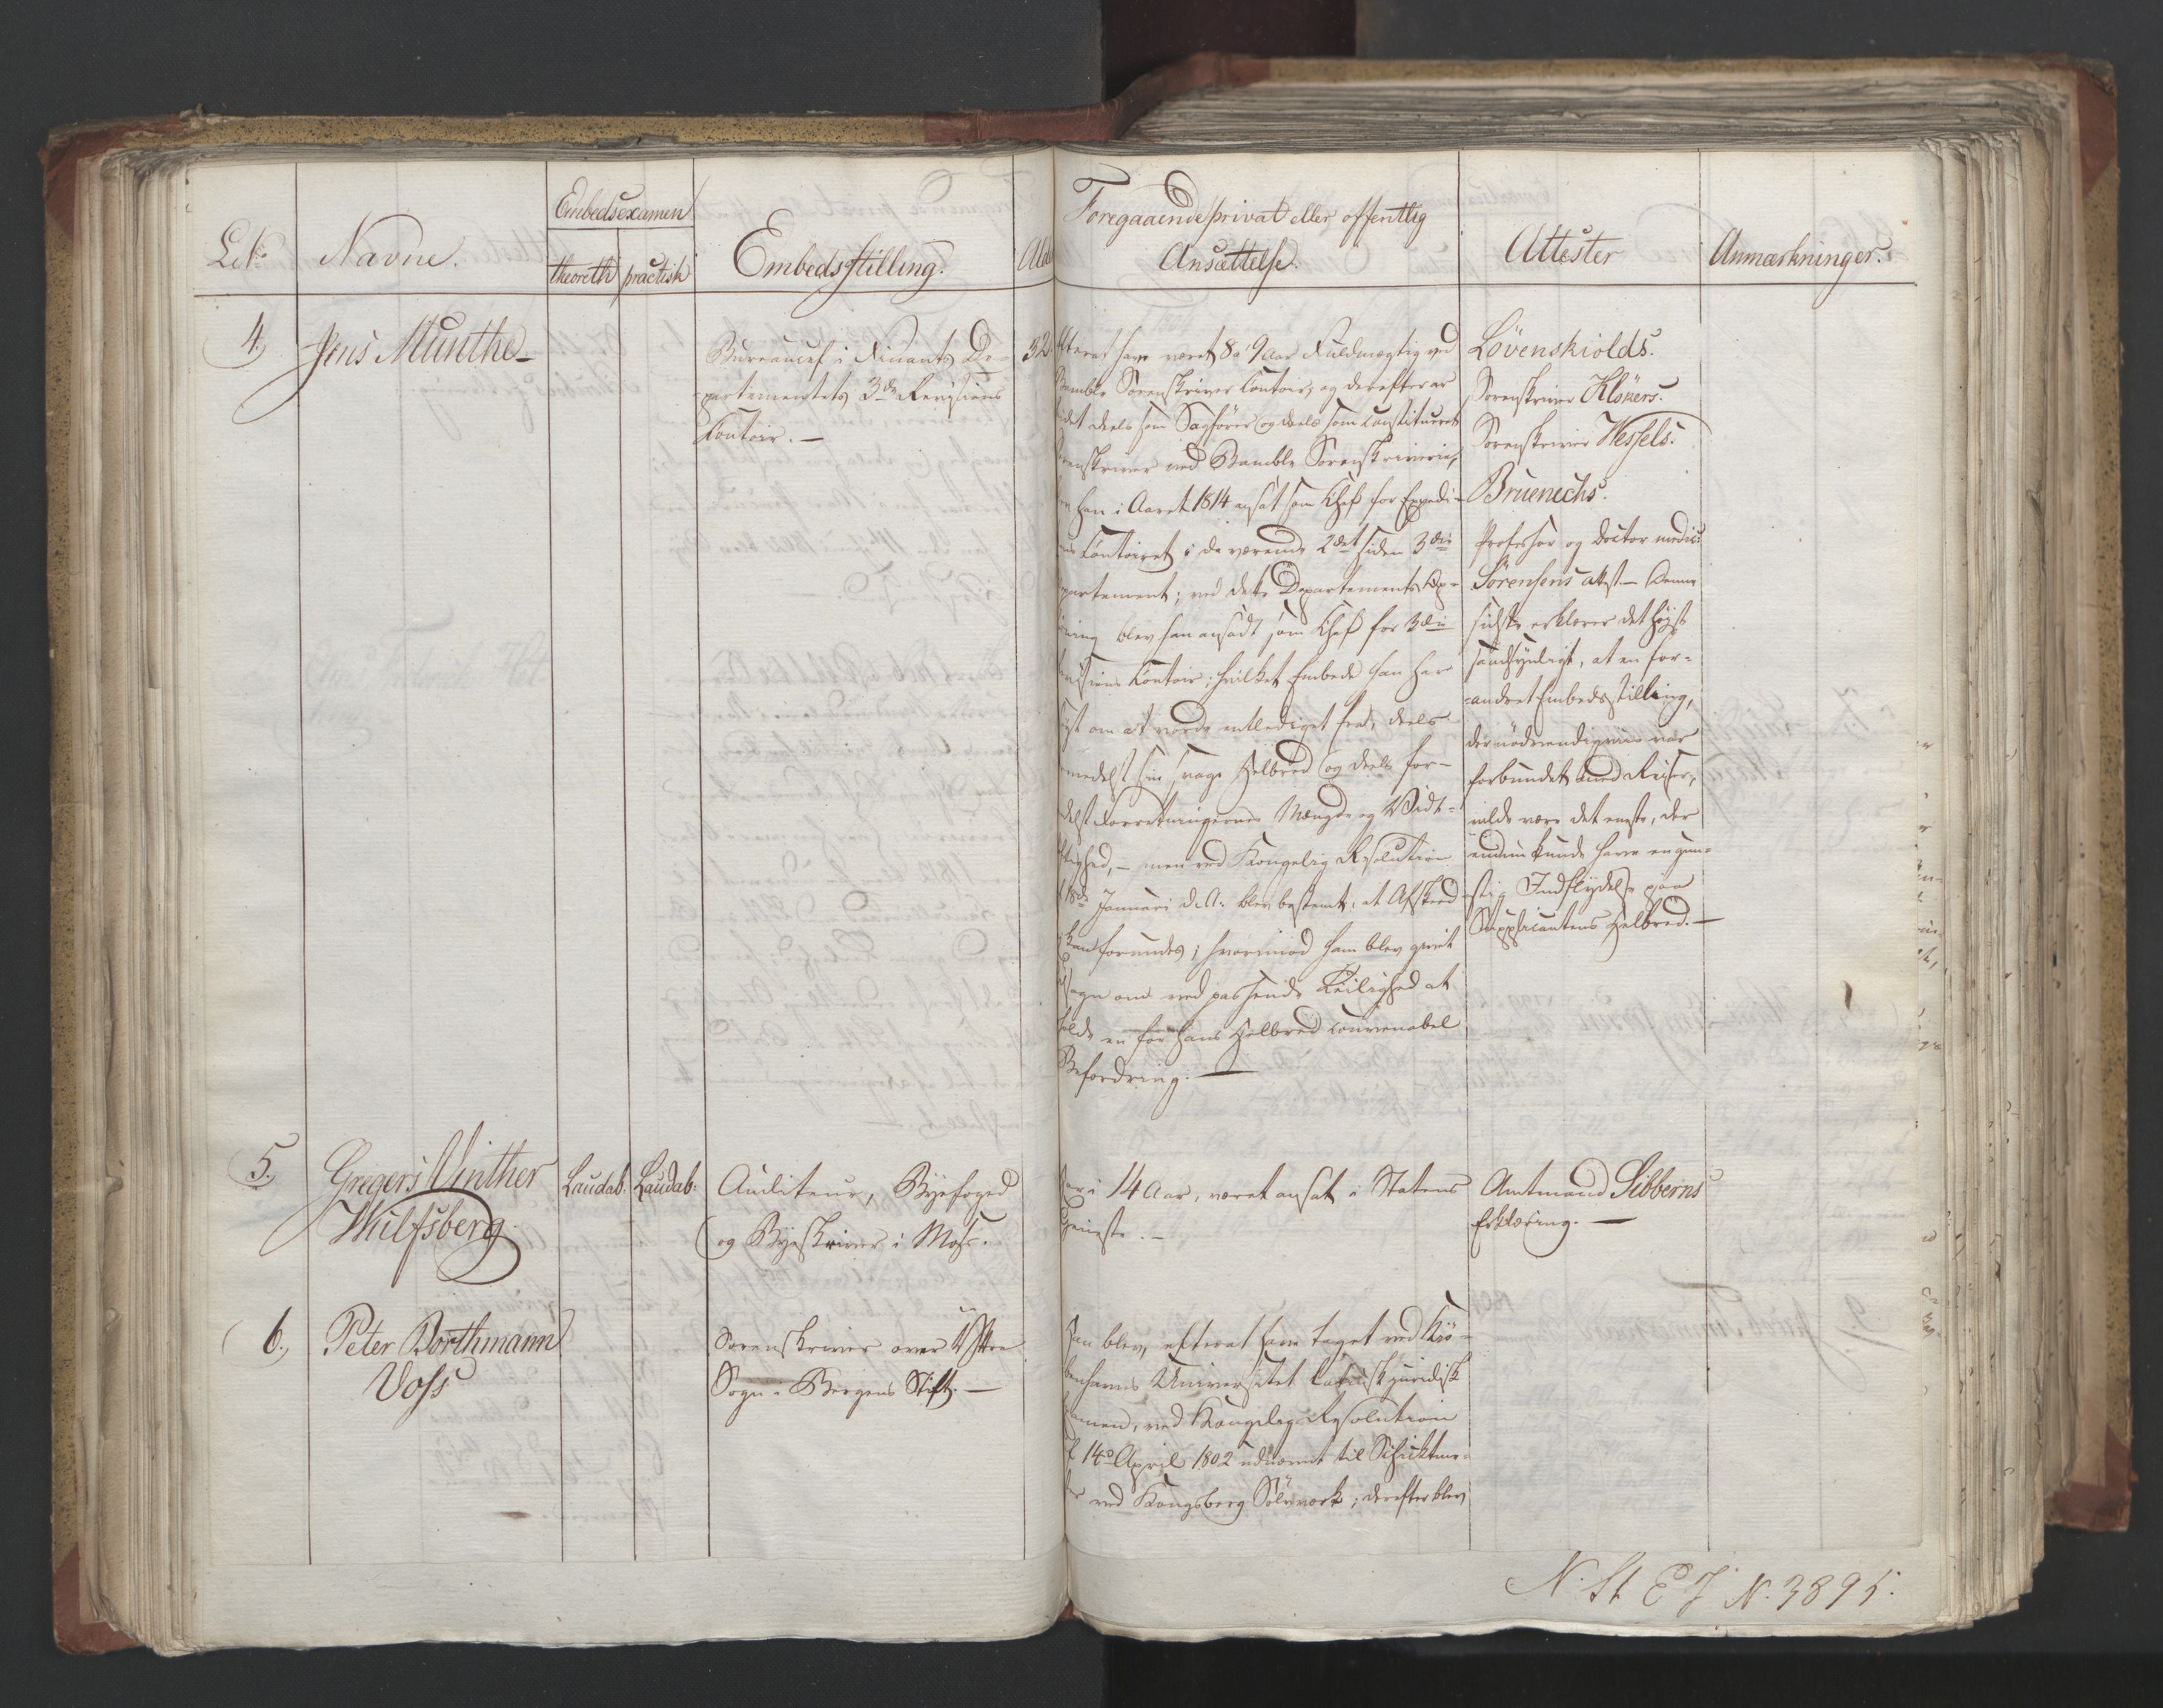 Embedsexamen
L. No
Navne.
theoretk
practisk
Embedsstilling.
Alde
Foregaaende privat eller offentlig
Ansættelse.
Attester
Anmærkninger.
4
Jens Munthe
Bureauchef i Finants De-
partementets 3die Revisions
Contoir.
32
efterat have været 8 a 9 Aar Fuldmægtig ved
Bamble Sorenskriver Contoir, og derefter ar
deels som Sagfører og deels som Constitueret
Sorenskriver ved Bamble Sorenskriverie,
han i Aaret 1814 ansat som Chef for Expedi-
Contoiret i da værende 2det siden 3die
partement; ved dette Departements Op-
blev han ansadt som Chef for 3die
Contoir; hvilket Embede han har
om at vorde entlediget fra, deels
formedelst sin svage Helbred og deels for-
delst Forretningernes Mængde og Vidt-
men ved Kongelig Resolution
18de Januari d. A. blev bestemt, at Afskeed
forundes; hvorimod ham blev givet
om ved passende Leilighed at
en for hans Helbred convenabel
Befordring.
Lövenskiolds.
Sorenskriver Klökers.
Sorenskriver Wessels.
Bruenechs.
Professor og Doctor medic:
Sörensens Attest. Denne
sidste erklærer det høist
sandsynligt, at en for-
andret Embedsstilling,
der nødvendigviis var
forbundet med Reiser,
vilde være det eneste, der
endnu kunde have en gun-
stig Indflydelse paa
Supplicantens Helbred.
5.
Gregers Vinther
Wulfsberg
Laudab:
Laudab:
Auditeur, Byefoged
og Byeskriver i Moss.
har i 14 Aar, været ansat i Statens
Tjeneste.
Amtmand Sibberns
Erklæring.
6.
Peter Borthmann
Voss
Sorenskriver over Yttre
Sogn i Bergens Stift.
Han blev, efterat have taget ved Kiö-
benhavns Universitet Latinsk juridisk
Examen, ved Kongelig Resolution
14de April 1802 udnævnt til Schicktme-
ved Kongsberg Sølvværk; derefter blev
N. St. E J N. 3895.